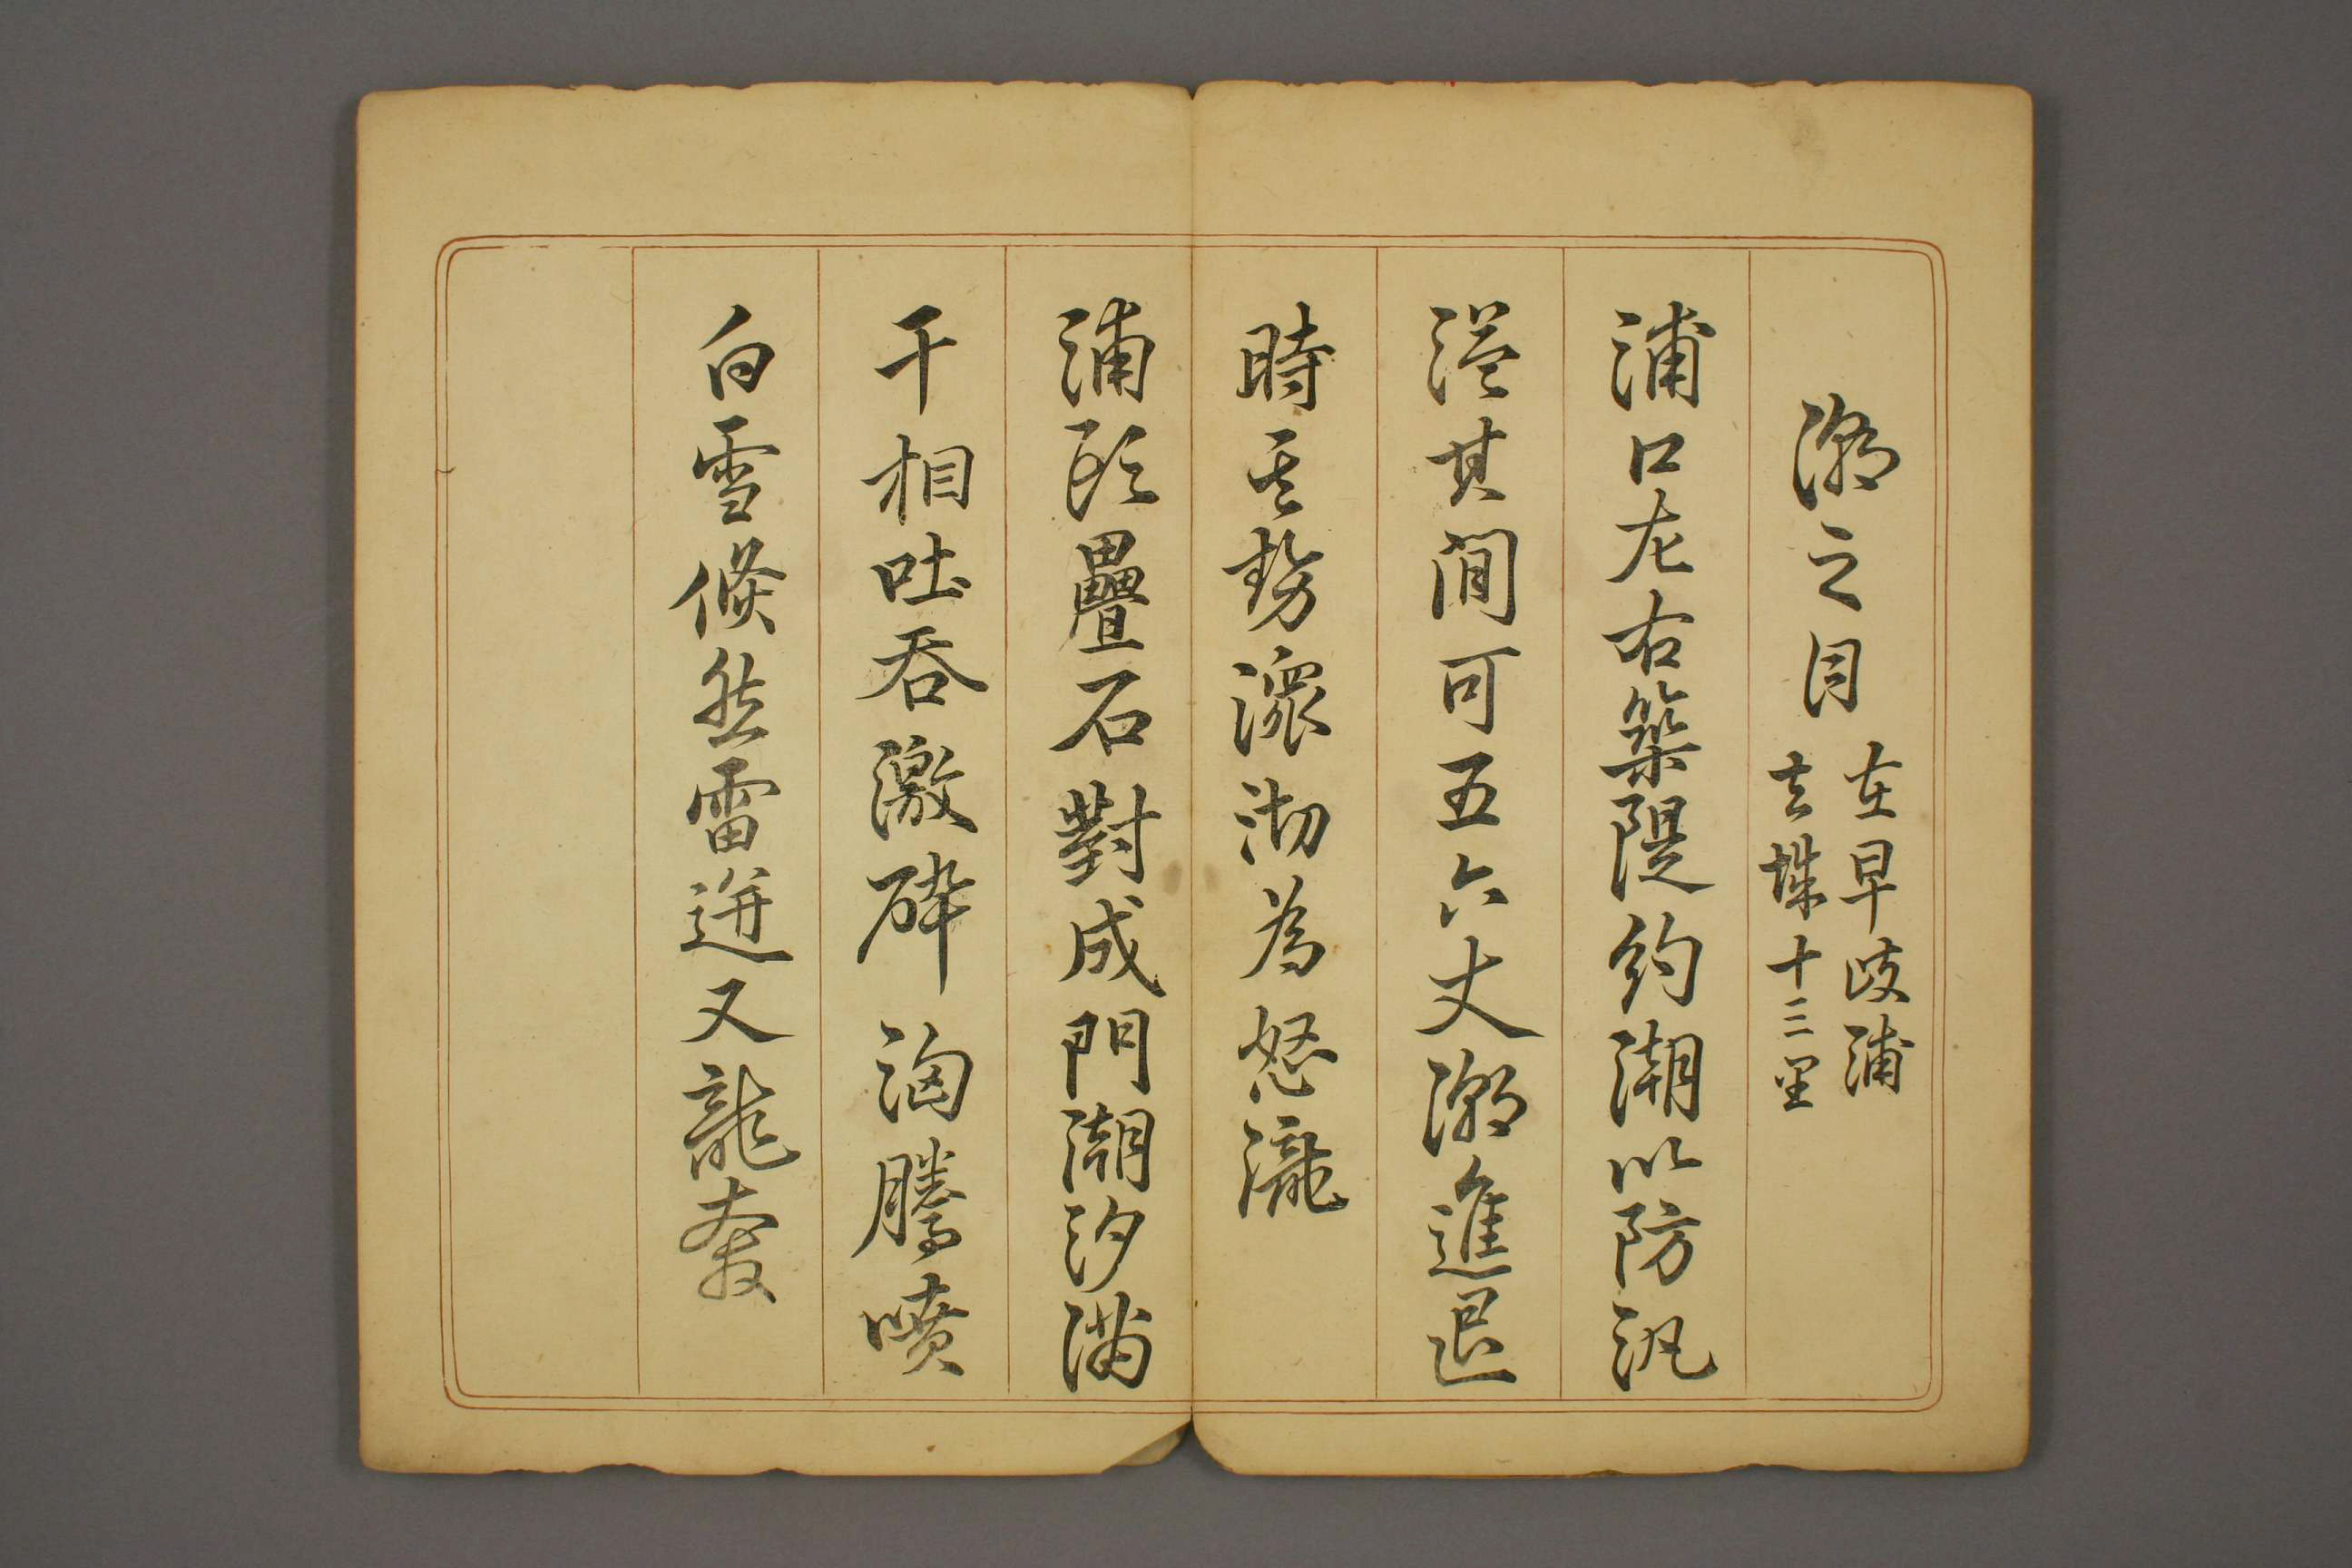 潮之目
在早岐浦
去堠十三里
浦口左右築隄約潮以防汎
溢其間可五六丈潮進退
時其勢瀠沕為怒瀧
浦頭疊石對成門潮汐滿
干相吐吞激碎洶騰噴
白雪倏然雷迸又龍奮